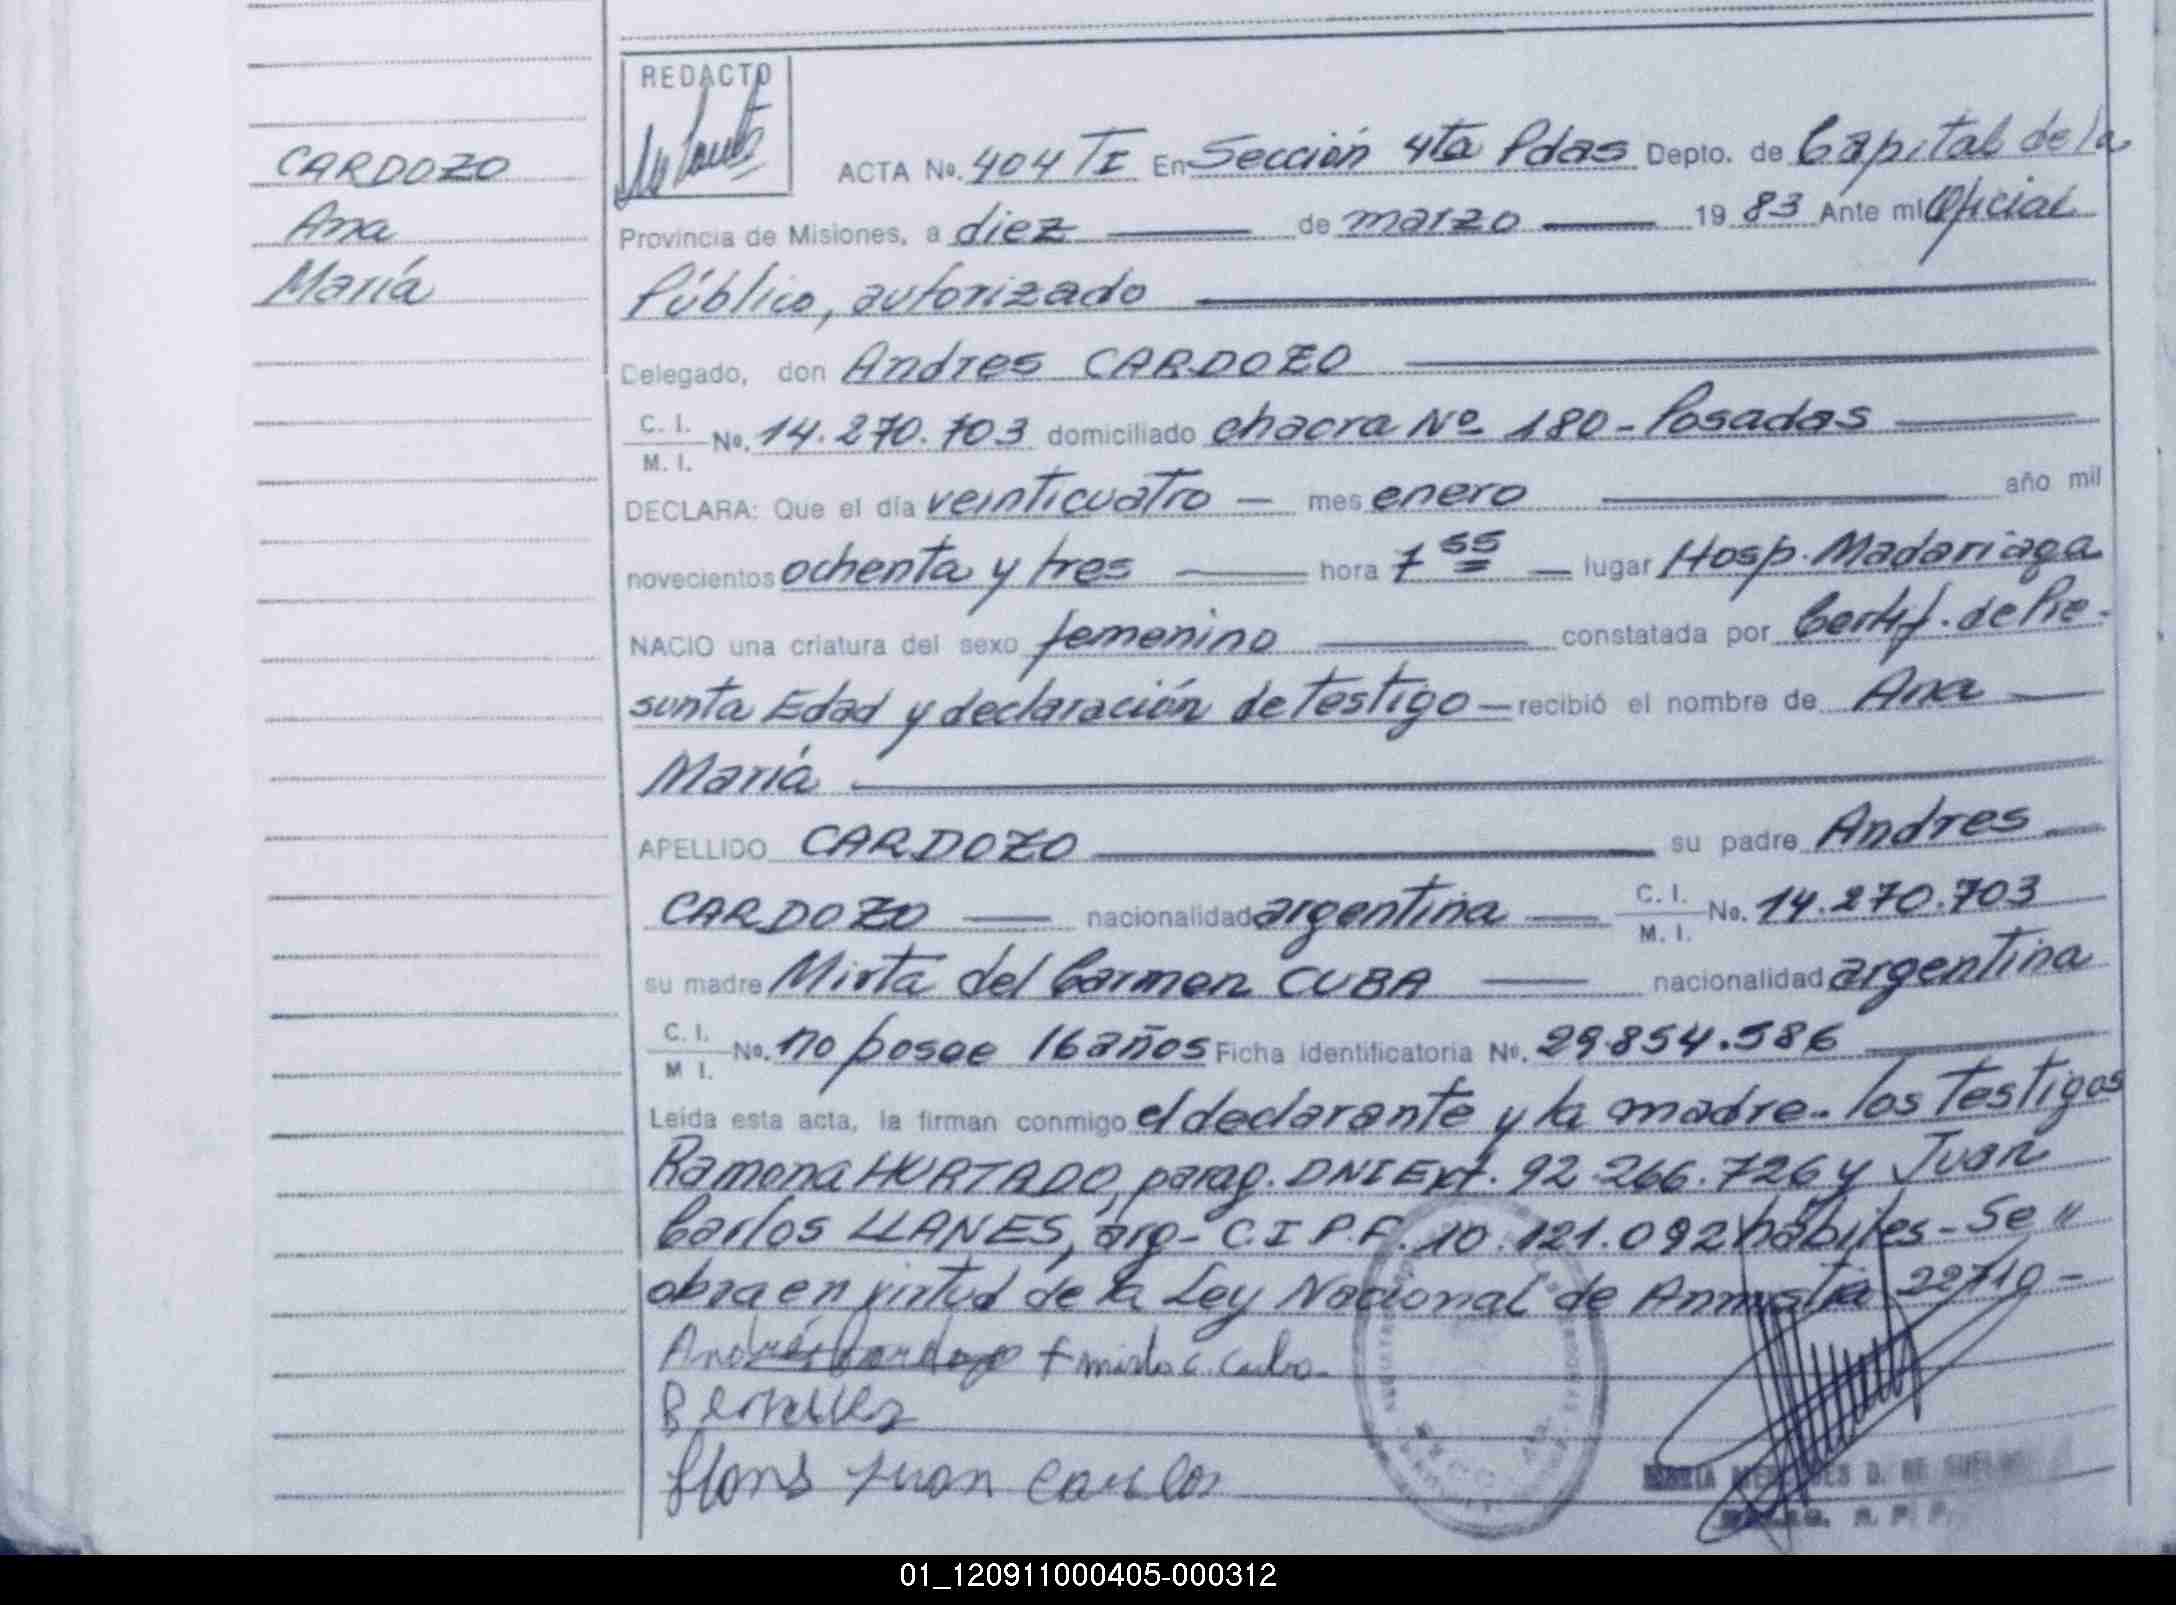 REDACTO
CARDOZO
Ana
María
ACTA No. 404 TI En Sección 4ta Pdas Depto. de Capital de la
Provincia de Misiones, a diez de marzo 19 83 Ante mí Oficial
Público, autorizado
Delegado, don Andres CARDOZO
C. I.
M. I. No. 14.270.703 domiciliado chacra Nº 180 - Posadas
DECLARA: Que el día veinticuatro - mes enero año mil
novecientos ochenta y tres hora 7 55 lugar Hosp. Madariaga
NACIO una criatura del sexo femenino constatada por Certif. de Pre-
sunta Edad y declaración de testigo - recibió el nombre de Ana
María
APELLIDO CARDOZO su padre Andres
CARDOZO nacionalidad argentina C. I.
M. I. No. 14.270.703
su madre Mirta del Carmen CUBA nacionalidad argentina
C. I.
M I. No. no posee 16 años Ficha identificatoria No. 29.854.586
Leída esta acta, la firman conmigo el declarante y la madre.. los testigos
Ramona HURTADO, parag. DNI Ext. 92.266.726 y Juan
Carlos LLANES, arg- C.I P.F. 10.121.092 hábiles - Se "
obra en virtud de la Ley Nacional de Amnistia 22710 -
Andrés Cardozo + mirta c. cuba
Juan Carlos
MARIA MERCEDES D. DE
R. P. P.
01_120911000405-000312